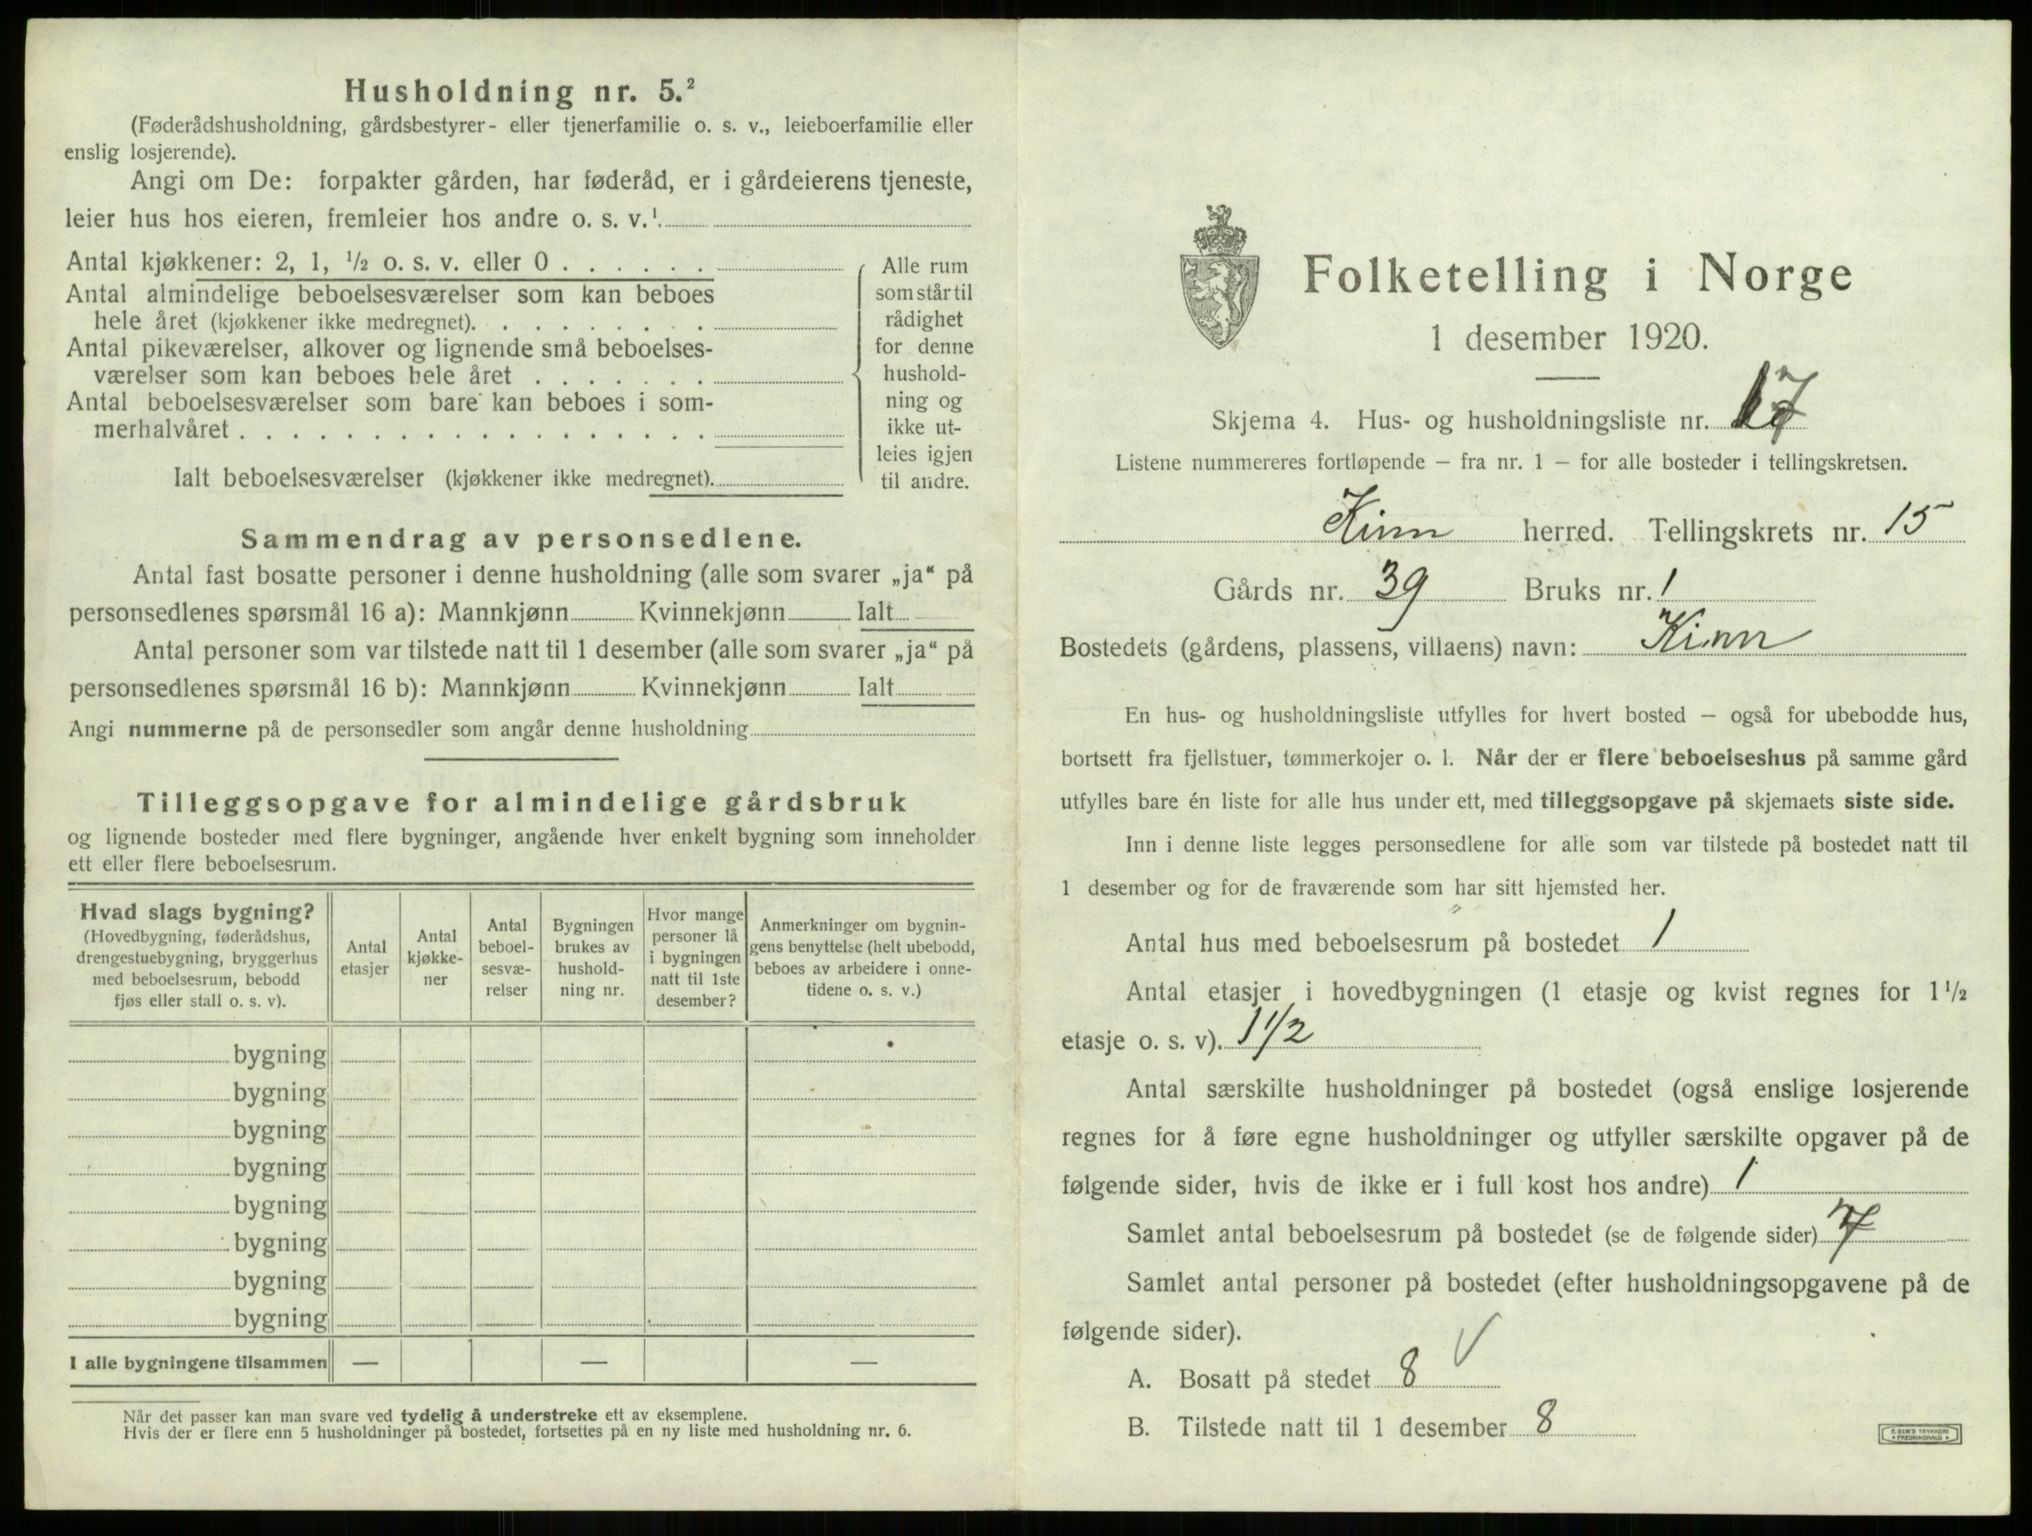 Husholdning nr. 5.²
(Føderådshusholdning, gårdsbestyrer- eller tjenerfamilie o. s. v., leieboerfamilie eller
enslig losjerende).
Angi om De: forpakter gården, har føderåd, er i gårdeierens tjeneste,
leier hus hos eieren, fremleier hos andre o. s. v.¹
Antal kjøkkener: 2, 1, ½ o. s. v. eller 0
Antal almindelige beboelsesværelser som kan beboes
hele året (kjøkkener ikke medregnet)
Antal pikeværelser, alkover og lignende små beboelses-
værelser som kan beboes hele året
Antal beboelsesværelser som bare kan beboes i som-
merhalvåret
Ialt beboelsesværelser (kjøkkener ikke medregnet)
Alle rum
som står til
rådighet
for denne
hushold-
ning og
ikke ut-
leies igjen
til andre.
Sammendrag av personsedlene.
Antal fast bosatte personer i denne husholdning (alle som svarer „ja“ på
personsedlenes spørsmål 16 a): Mannkjønn Kvinnekjønn Ialt
Antal personer som var tilstede natt til 1 desember (alle som svarer „ja“ på
personsedlenes spørsmål 16 b): Mannkjønn Kvinnekjønn Ialt
Angi nummerne på de personsedler som angår denne husholdning
Tilleggsopgave for almindelige gårdsbruk
og lignende bosteder med flere bygninger, angående hver enkelt bygning som inneholder
ett eller flere beboelsesrum.
Hvad slags bygning?
(Hovedbygning, føderådshus,
drengestuebygning, bryggerhus
med beboelsesrum, bebodd
fjøs eller stall o. s. v).
Antal
etasjer
Antal
kjøkke-
ner
Antal
beboel-
sesvæ-
relser
Bygningen
brukes av
hushold-
ning nr.
Hvor mange
personer lå
i bygningen
natt til 1ste
desember?
Anmerkninger om bygnin-
gens benyttelse (helt ubebodd,
beboes av arbeidere i onne-
tidene o. s. v.)
bygning
bygning
bygning
bygning
bygning
bygning
bygning
bygning
I alle bygningene tilsammen — — —
Når det passer kan man svare ved tydelig å understreke ett av eksemplene.
Hvis der er flere enn 5 husholdninger på bostedet, fortsettes på en ny liste med husholdning nr. 6.
Folketelling i Norge
1 desember 1920.
Skjema 4. Hus- og husholdningsliste nr. 17
Listene nummereres fortløpende – fra nr. 1 – for alle bosteder i tellingskretsen.
Kinn herred. Tellingskrets nr. 15
Gårds nr. 39 Bruks nr. 1
Bostedets (gårdens, plassens, villaens) navn: Kinn
En hus- og husholdningsliste utfylles for hvert bosted – også for ubebodde hus,
bortsett fra fjellstuer, tømmerkojer o. l. Når der er flere beboelseshus på samme gård
utfylles bare én liste for alle hus under ett, med tilleggsopgave på skjemaets siste side.
Inn i denne liste legges personsedlene for alle som var tilstede på bostedet natt til
1 desember og for de fraværende som har sitt hjemsted her.
Antal hus med beboelsesrum på bostedet 1
Antal etasjer i hovedbygningen (1 etasje og kvist regnes for 1½
etasje o. s. v). 1½
Antal særskilte husholdninger på bostedet (også enslige losjerende
regnes for å føre egne husholdninger og utfyller særskilte opgaver på de
følgende sider, hvis de ikke er i full kost hos andre) 1
Samlet antal beboelsesrum på bostedet (se de følgende sider) 7
Samlet antal personer på bostedet (efter husholdningsopgavene på de
følgende sider).
A. Bosatt på stedet 8
B. Tilstede natt til 1 desember 8
E. SEM'S TRYKKERI
FREDRIKSHALD